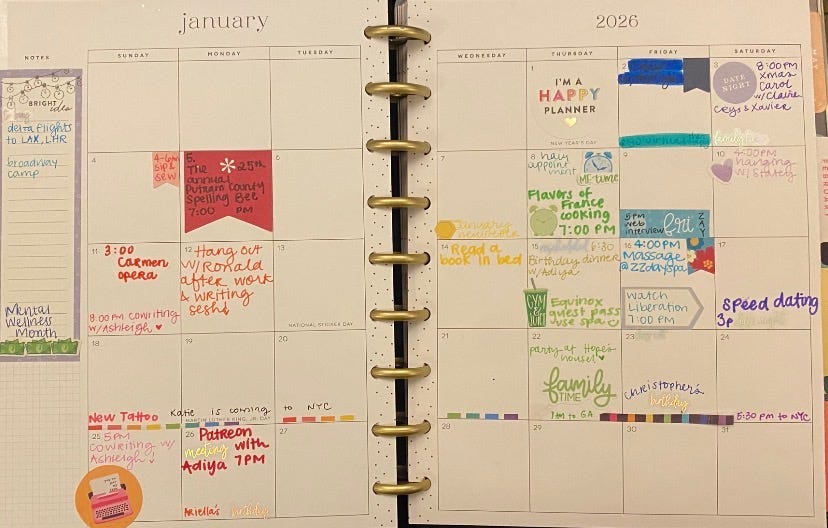 january
2026
NOTES
SUNDAY
MONDAY
TUESDAY
WEDNESDAY
THURSDAY
FRIDAY
SATURDAY
BRIGHT
idea
delta flights
to LAX, LHR
broadway
camp
Mental
Wellness
Month
1
I'M A
HAPPY
PLANNER
NEW YEAR'S DAY
2
3
DATE
NIGHT
8:00 PM
Xmas
Carol
w/Claire
Ceys & Xavier
family
4
4-6pm
sip &
sew
5
The 25th
annual
Putnam County
Spelling Bee
7:00 PM
6
7
January
newsletter
8
hair
appoint
ment
ME time
Flavors of
France
cooking
7:00 PM
9
5PM
web
interview
fri
YAZ
10
4:00PM
hanging
w/Stately
11
3:00
Carmen
opera
8:00 PM cowriting
w/Ashleigh
12
Hang out
w/Ronald
after work
& writing
sesh
13
NATIONAL STICKER DAY
14
Read a
book in bed
15
6:30
Birthday dinner
w/Adiya
GYM
Equinox
guest pass
use spa
16
4:00PM
Massage
@ZZdayspa
Watch
Liberation
7:00 PM
17
Speed dating
3p
18
New Tattoo
19
Katie is coming
MARTIN LUTHER KING, JR. DAY
20
to NYC
21
22
party at Hope's
house!
family
TIME
7AM to GA
23
Christopher's
birthday
24
5:30 PM to NYC
25
5PM
cowriting w/
Ashleigh
26
Patreon
meeting with
Adiya 7PM
Ariella's birthday
27
28
29
30
31
MAY
FEBRUARY